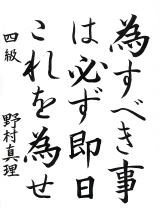 為すべき事
は必ず即日
これを為せ
四級　野村真理